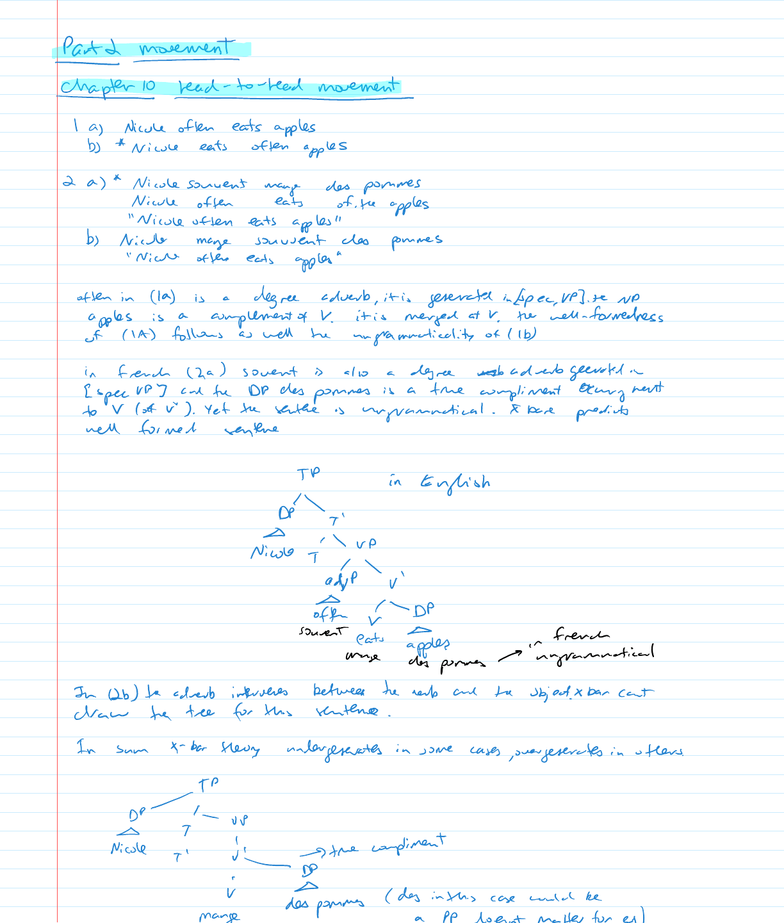 Part 2 movement
Chapter 10 head-to-head movement
1 a) Nicole often eats apples
b) * Nicole eats often apples
2 a) * Nicole souvent mange des pommes
Nicole often eats of.the apples
"Nicole often eats apples"
b) Nicole mange souvent des pommes
"Nicole often eats apples"
often in (1a) is a degree adverb, it is generated in [spec, VP]. the NP
apples is a complement of V. it is merged at V. the well-formedness
of (1A) follows as well the ungrammaticality of (1b)
in french (2a) souvent is also a degree adverb generated in
[spec VP] and the DP des pommes is a true compliment next
to V (of V'). Yet the sentence is ungrammatical. X bar predicts
well formed sentence
TP in English
DP T'
Nicole T VP
advP V'
often V DP
souvent eats apples in french
mange des pommes → ungrammatical
In (2b) the adverb intervenes between the verb and the object. x bar cant
draw the tree for this sentence.
In sum X-bar theory undergenerates in some cases, overgenerates in others
TP
DP T VP
Nicole T' V' → true compliment
DP
V des pommes (des in this case could be
mange a PP doesnt matter for es)